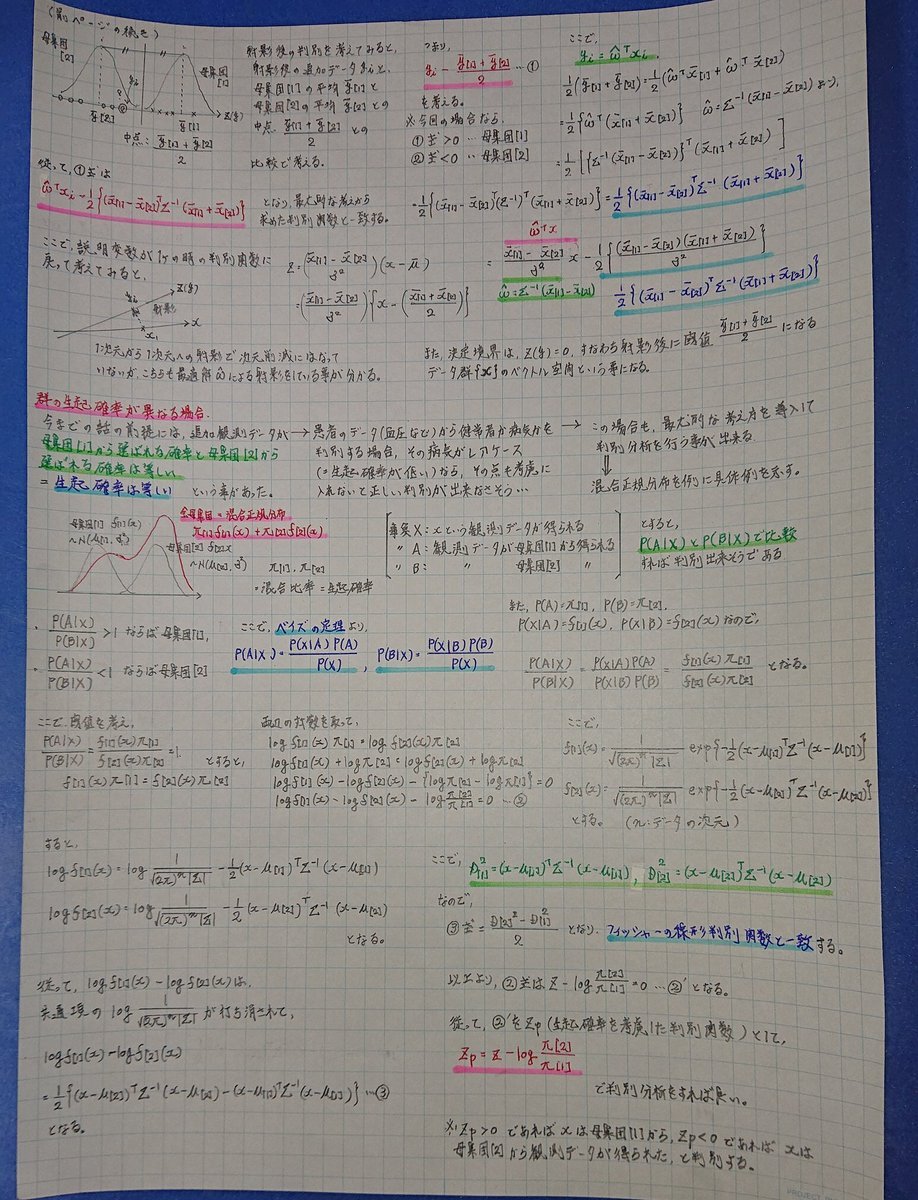 (前ページの続き)
母集団[2]
母集団[1]
ȳ[2]
ȳ[1]
Z(y)
中点: (ȳ[1]+ȳ[2])/2
射影後の判別を考えてみると、
射影後の追加データyiと、
母集団[1]の平均ȳ[1]と
母集団[2]の平均ȳ[2]との
中点 (ȳ[1]+ȳ[2])/2 との
比較で考える。
つまり、
yi - (ȳ[1]+ȳ[2])/2 …①
を考える。
※今回の場合なら、
①式>0 … 母集団[1]
②式<0 … 母集団[2]
ここで、
yi = ω̂ᵀxi、
1/2(ȳ[1]+ȳ[2]) = 1/2(ω̂ᵀx̄[1]+ω̂ᵀx̄[2])
= 1/2{ω̂ᵀ(x̄[1]+x̄[2])} ω̂=Σ⁻¹(x̄[1]-x̄[2])より、
= 1/2[{Σ⁻¹(x̄[1]-x̄[2])}ᵀ(x̄[1]+x̄[2])]
= 1/2{(x̄[1]-x̄[2])ᵀ(Σ⁻¹)ᵀ(x̄[1]+x̄[2])} = 1/2{(x̄[1]-x̄[2])ᵀΣ⁻¹(x̄[1]+x̄[2])}
従って、①式は
ω̂ᵀxi - 1/2{(x̄[1]-x̄[2])ᵀΣ⁻¹(x̄[1]+x̄[2])}
となり、最尤的な考えから
求めた判別関数と一致する。
ここで、説明変数が1ヶの時の判別関数に
戻って考えてみると、
Z=((x̄[1]-x̄[2])/σ̂²)(x-μ̄)
=((x̄[1]-x̄[2])/σ̂²){x-((x̄[1]+x̄[2])/2)}
ω̂ᵀx
= (x̄[1]-x̄[2])/σ̂² x - 1/2{(x̄[1]-x̄[2])(x̄[1]+x̄[2])/σ̂²}
ω̂=Σ⁻¹(x̄[1]-x̄[2])
1/2{(x̄[1]-x̄[2])ᵀΣ⁻¹(x̄[1]+x̄[2])}
Z(y)
yi
射影
x
x1
1次元から1次元への射影で次元削減にはなって
いないが、こちらも最適解ω̂による射影をしている事が分かる。
また、決定境界は、Z(y)=0、すなわち射影後に閾値 (ȳ[1]+ȳ[2])/2 になる
データ群{x}のベクトル空間という事になる。
群の生起確率が異なる場合
今までの話の前提には、追加観測データが
母集団[1]から選ばれる確率と母集団[2]から
選ばれる確率は等しい
=生起確率は等しい という事があった。
→ 患者のデータ(血圧など)から健常者か病気かを
判別する場合、その病気がレアケース
(=生起確率が低い)なら、その点も考慮に
入れないと正しい判別が出来なさそう…
→ この場合も、最尤的な考え方を導入して
判別分析を行う事が出来る。
⇓
混合正規分布を例に具体例を示す。
母集団[1] f[1](x)
~N(μ[1], σ²)
母集団[2] f[2](x)
~N(μ[2], σ²)
全母集団=混合正規分布
π[1]f[1](x)+π[2]f[2](x)
π[1], π[2]
=混合比率=生起確率
事象X: xという観測データが得られる
〃 A: 観測データが母集団[1]から得られる
〃 B: 〃 母集団[2] 〃
とすると、
P(A|X)とP(B|X)で比較
すれば判別出来そうである
P(A|X)/P(B|X) >1 ならば母集団[1],
P(A|X)/P(B|X) <1 ならば母集団[2]
ここで、ベイズの定理より、
P(A|X)=P(X|A)P(A)/P(X), P(B|X)=P(X|B)P(B)/P(X)
また、P(A)=π[1], P(B)=π[2],
P(X|A)=f[1](x), P(X|B)=f[2](x)なので、
P(A|X)/P(B|X) = P(X|A)P(A)/P(X|B)P(B) = f[1](x)π[1]/f[2](x)π[2] となる。
ここで、閾値を考え、
P(A|X)/P(B|X) = f[1](x)π[1]/f[2](x)π[2] = 1 とすると、
f[1](x)π[1]=f[2](x)π[2]
両辺の対数を取って、
log f[1](x)π[1]=log f[2](x)π[2]
log f[1](x)+logπ[1]=log f[2](x)+logπ[2]
log f[1](x)-log f[2](x)-{logπ[2]-logπ[1]}=0
log f[1](x)-log f[2](x)-log π[2]/π[1]=0 …②
ここで、
f[1](x)= 1/√((2π)ⁿ|Σ|) exp{-1/2(x-μ[1])ᵀΣ⁻¹(x-μ[1])}
f[2](x)= 1/√((2π)ⁿ|Σ|) exp{-1/2(x-μ[2])ᵀΣ⁻¹(x-μ[2])}
とする。 (n:データの次元)
すると、
log f[1](x)=log 1/√((2π)ⁿ|Σ|) -1/2(x-μ[1])ᵀΣ⁻¹(x-μ[1])
log f[2](x)=log 1/√((2π)ⁿ|Σ|) -1/2(x-μ[2])ᵀΣ⁻¹(x-μ[2])
となる。
従って、log f[1](x)-log f[2](x)は、
共通項の log 1/√((2π)ⁿ|Σ|) が打ち消されて、
log f[1](x)-log f[2](x)
=1/2{(x-μ[2])ᵀΣ⁻¹(x-μ[2])-(x-μ[1])ᵀΣ⁻¹(x-μ[1])} …③
となる。
ここで、
D²[1]=(x-μ[1])ᵀΣ⁻¹(x-μ[1]), D²[2]=(x-μ[2])ᵀΣ⁻¹(x-μ[2])
なので、
③式=(D[2]²-D[1]²)/2 となり、フィッシャーの線形判別関数と一致する。
以上より、②式は Z-log π[2]/π[1]=0 …②' となる。
従って、②'をZp(生起確率を考慮した判別関数)として、
Zp=Z-log π[2]/π[1]
で判別分析をすれば良い。
※Zp>0であればxは母集団[1]から、Zp<0であればxは
母集団[2]から観測データが得られた、と判別する。